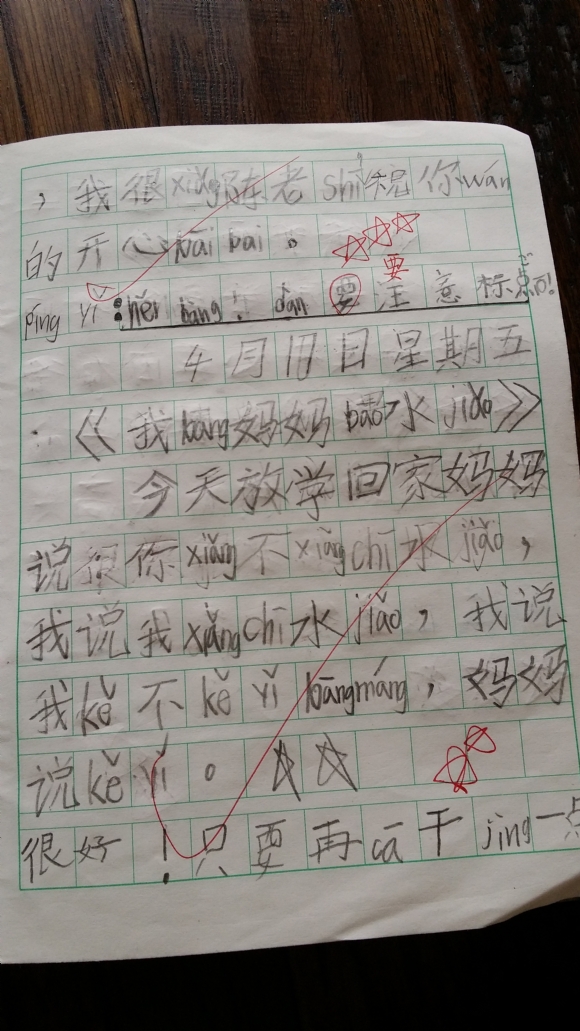 ，我很xiǎng陈老shī祝你wán
的开心bāi bai。
píng yǐ：hěn bàng！dàn要注意标点
4月17日星期五
《我bāng妈妈bāo水jiǎo》
今天放学回家妈妈
说你xiǎng不xiǎng chī水jiǎo，
我说我xiǎng chī水jiǎo，我说
我kě不kě yǐ bāngmáng，妈妈
说kě yǐ。
很好！只要再cā干jìng一点